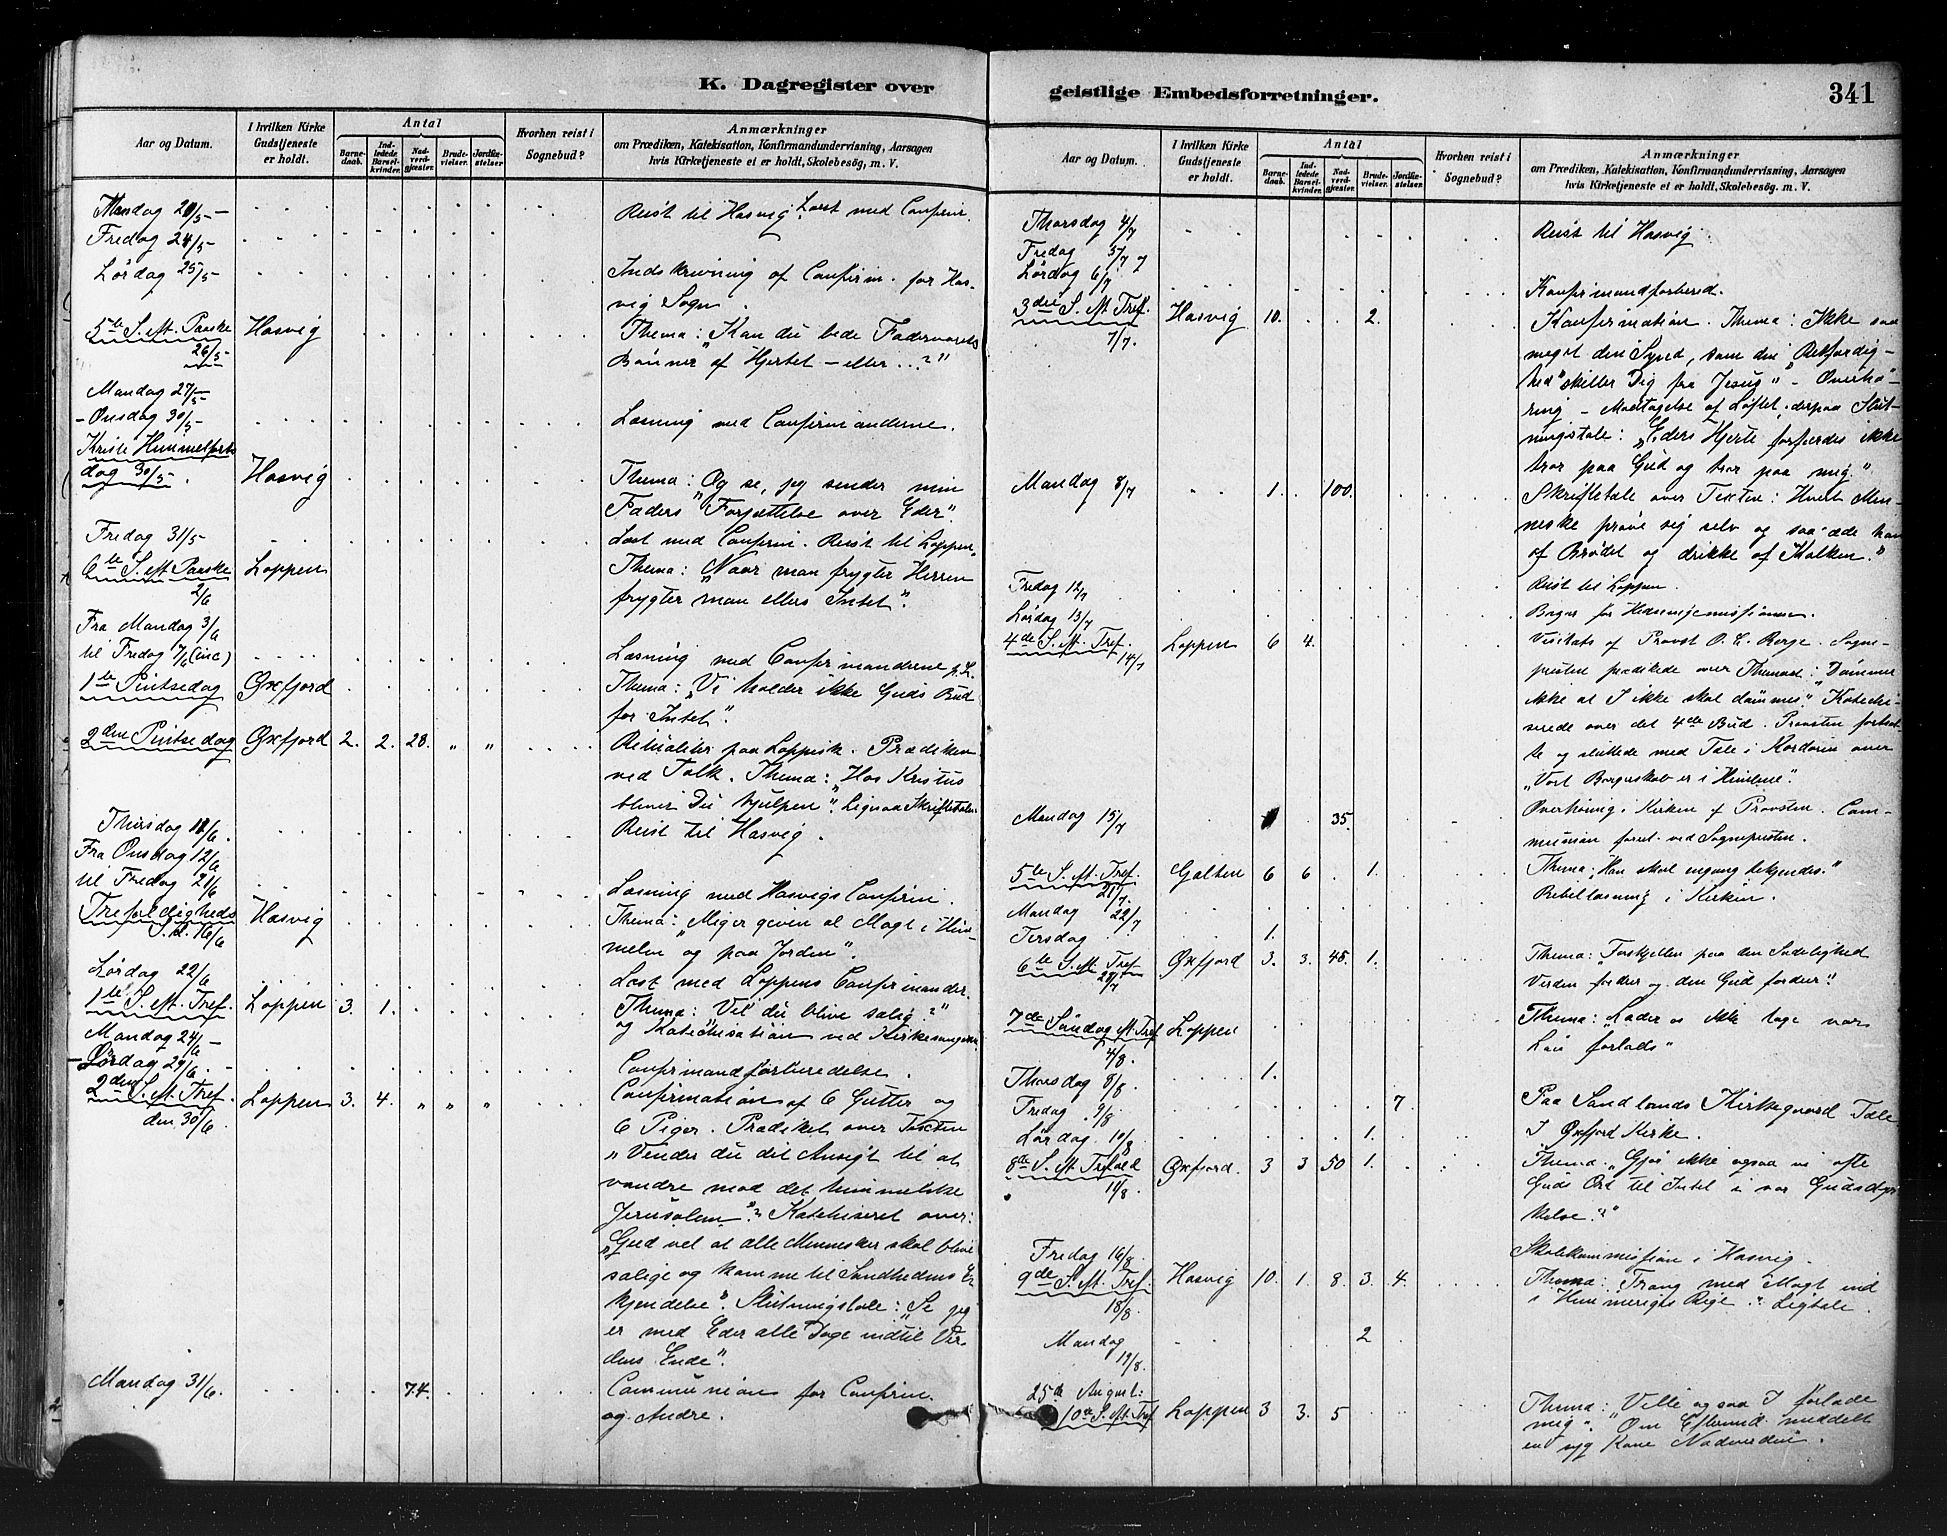 K. Dagregister over
Aar og Datum.
I hvilken Kirke Gudstjeneste er holdt.
Antal
Barnedaab.
Indledede Barselkvinder.
Nadverdgjæster.
Brudevielser.
Jordfæstelser.
Hvorhen reist i Sognebud?
Anmærkninger
om Prædiken, Katekisation, Konfirmandundervisning, Aarsagen
hvis Kirketjeneste et er holdt, Skolebesøg, m. V.
Fredag 24/5 Reist til Hasvig. Læst med Confirm.
Lördag 25/5 Indskrivning af Confirm. for Has-
vig Sogn.
5te S. M. Paaske Hasvig Thema: "Kan du bede Fadervorets
26/5 Bönner af Hjertet – eller ...?"
Mandag 27/5
- Onsdag 30/5 Læsning med Confirmanderne.
Kristi Himmelfarts
dag 30/5. Hasvig Thema: "Og se, jeg sender min
Faders Forjættelse over Eder".
Fredag 31/5 Læst med Confirm. Reist til Loppen.
6te S. M. Paaske Loppen Thema: "Naar man frygter Herren
2/6 frygter man ellers Intet".
Fra Mandag 3/6
til Fredag 7/6 (inc) Læsning med Confirmanderne p. L.
1ste Pintsedag Øxfjord Thema: "Vi holder ikke Guds Bud
for Intet".
2den Pintsedag Øxfjord 2. 2. 28. " " Ritualiter paa Lappisk. Prædiken
ved Tolk. Thema: "Hos Kristus
bliver Du hjulpen". Ligesaa Skriftetalen.
Reist til Hasvig.
Fra Onsdag 12/6
til Fredag 21/6 Læsning med Hasvigs Confirm.
Trefoldigheds Hasvig Thema: "Mig er given al Magt i Him-
S. d. 16/6 melen og paa Jorden".
Lördag 22/6 Læst med Loppens Confirmander.
1ste S. M. Tref. Loppen 3. 1. Thema: "Vil du blive salig?"
og Katechisation ved Kirkesangeren.
Mandag 24/6 –
– Lördag 29/6. Confirmandforberedelse.
2den S. M. Tref. Loppen 3. 4. " " " Confirmation af 6 Gutter og
den 30/6 6 Piger. Prædiket over Texten
"Vender du dit Ansigt til at
vandre mod det himmelske
Jerusalem"? Katekiseret over:
"Gud vel at alle Mennesker skal blive
salige og komme til Sandhedens Er-
kjendelse". Slutningstale: "Se jeg
er med Eder alle Dage indtil Ver-
dens Ende".
Mandag 31/6. 74. Communion for Confirm.
og Andre.
geistlige Embedsforretninger.
341
Aar og Datum.
I hvilken Kirke Gudstjeneste er holdt.
Antal
Barnedaab.
Indledede Barselkvinder.
Nadverdgjæster.
Brudevielser.
Jordfæstelser.
Hvorhen reist i Sognebud?
Anmærkninger
om Prædiken, Katekisation, Konfirmandundervisning, Aarsagen
hvis Kirketjeneste et er holdt, Skolebesög, m. V.
Thorsdag 4/7 Reist til Hasvig
Fredag 5/7 og
Lördag 6/7 Konfirmandforbered.
3die S. M. Tref. Hasvig 10. 2. Konfirmation. Thema: Ikke saa
7/7. meget den Synd, som din "Retfærdig-
hed" skiller Dig fra Jesus" – Overhö-
ring – Modtagelse af Löftet, derpaa Slut-
ningstale: "Eders Hjerte forfærdes ikke
tror paa Gud og tror paa mig."
Mandag 8/7 1. 100. Skriftetale over Texten: Hvert Men-
neske pröve sig selv og saa æde han
af Brödet og drikke af Kalken."
Fredag 12/7 Reist til Loppen.
Lördag 13/7
4de S. M. Tref. Loppen 6 4. Visitats af Provst O. E. Berge. Sogne-
14/7 presten prædikede over Themaet: "Dömmer
ikke at I ikke skal dömmes". Kateki-
serede over det 4de Bud. Provsten fortsat-
te og sluttede med Tale i Kordören over
"Vort Borgerskab er i Himlene".
Mandag 15/7 35. Overhöring i Kirken af Provsten. Com-
munion forret. ved Sognepresten.
5te S. M. Tref. Galten 6 6 1. Thema:
21/7. Bibellæsning i Kirken.
Mandag 22/7
Tirsdag 1.
6te S. M. Tref. Øxfjord 3. 3. 45. 1. Thema: Forskjellen paa den Sædelighed
28/7 Verden fordrer og den Gud fordrer!"
7de Söndag M. Tref. Loppen Thema: "Lader os ikke tage vor
4/8. Lön forlods"
Thorsdag 8/8 1.
Fredag 9/8 7. Paa Sandlands Kirkegaard Tale
Lördag 10/8 1. I Øxfjord Kirke.
8de S. M. Trefold Øxfjord. 3 3 50 1. Thema: "Gjör ikke ogsaa vi ofte
11/8. Guds Ord til Intet i vor Gudsdyr-
kelse?"
Fredag 16/8 Skolekommission i Hasvig.
9de S. M. Tref. Hasvig 10. 1. 8. 3. 4. Thema: Trang med Magt ind
18/8. i Himmeriges Rige." Ligtale.
Mandag 2
19/8.
25de August:
10de S. M. Tref Loppen 3 3. 5 Thema: "Ville og saa I forlade
mig". Om Efterm. meddelt
en syg Kone Nadverden.